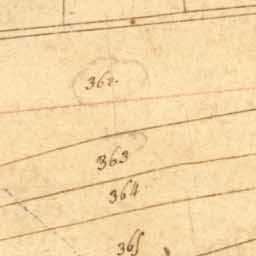 362.
363
364
365